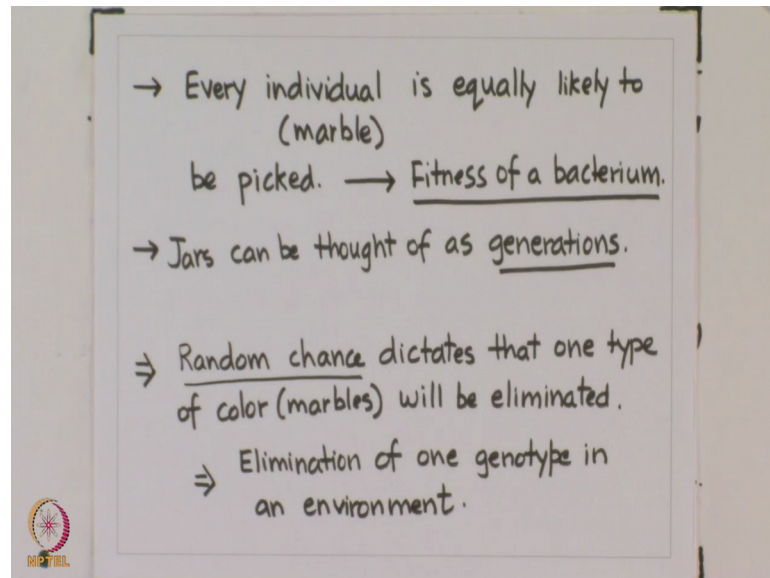 → Every individual is equally likely to
(marble)
be picked. → Fitness of a bacterium.
→ Jars can be thought of as generations.
⇒ Random chance dictates that one type
of color (marbles) will be eliminated.
⇒ Elimination of one genotype in
an environment.
NPTEL